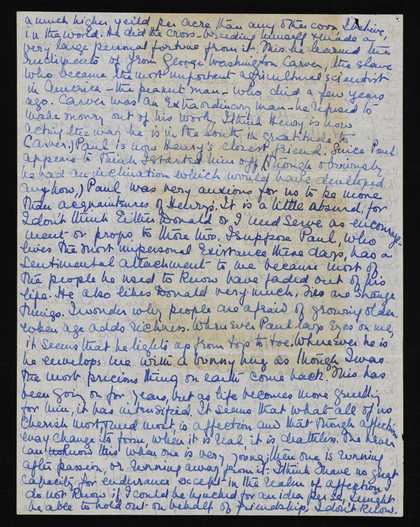 a much higher yeild per acre than any other corn I believe,
in the world. He did the cross-breeding himself & made a
very large personal fortune from it. This he learned the
rudiments of from George Washington Carver, the slave
who became the most important agricultural scientist
in America - the peanut man - who died a few years
ago. Carver was an extraordinary man - he refused to
make money out of his work. I think Henry is now
acting the way he is in the South, in gratitude to
Carver.) Paul is now Henry's closest friend. Since Paul
appears to think I started him off (though obviously
he had an inclination which would have developed
anyhow,) Paul was very anxious for us to be more
than acquaintances of Henry's. It is a little absurd, for
I don't think either Donald or I need serve as encourage-
ment or props to those two. I suppose Paul, who
lives the most impersonal existence these days, has a
sentimental attachment to me because most of
the people he used to know have faded out of his
life. He also likes Donald very much. Ties are strange
things. I wonder why people are afraid of growing older
when age adds richness. Whenever Paul lays eyes on me,
it seems that he lights up from top to toe. Wherever he is
he envelops me with a bunny hug as though I was
the most precious thing on earth come back. This has
been going on for years, but as life becomes more gruelling
for him, it has intensified. It seems that what all of us
cherish most, need most, is affection and that though affection
may change its form, when it is real it is deathless. One never
can know this when one is very young; then one is running
after passion, or running away from it. I think I have no great
capacity for endurance except in the realm of affection. I
do not know if I could be lynched for an idea per se, I might
be able to hold out on behalf of friendship. I don't